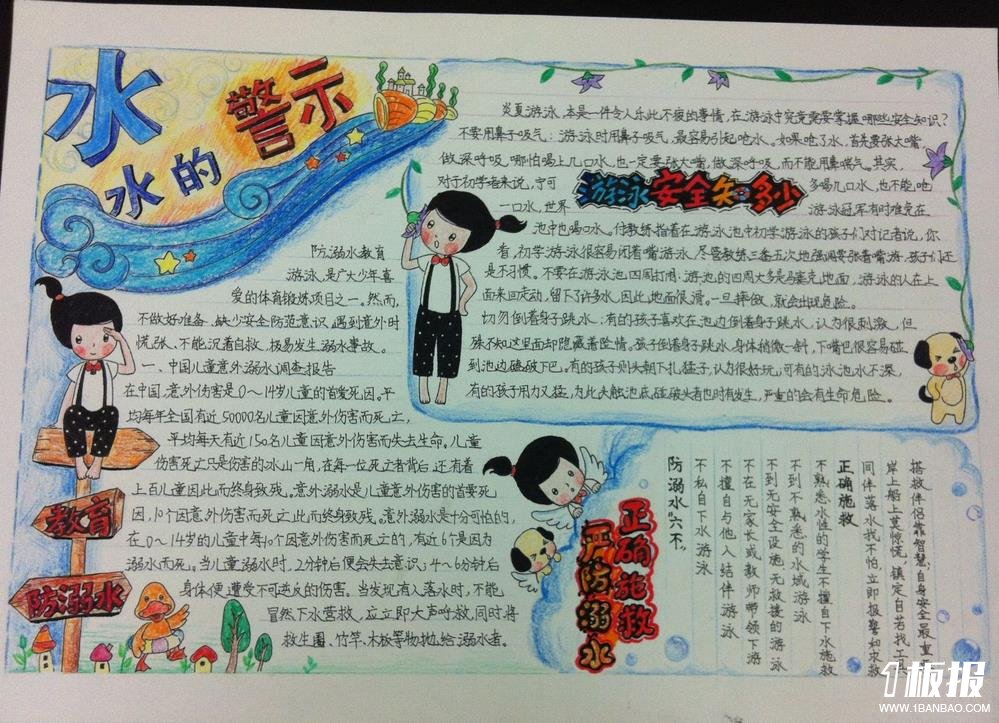 水
水的
警示
防溺水教育
游泳，是广大少年喜
爱的体育锻炼项目之一。然而，
不做好准备、缺少安全防范意识，遇到意外时
慌张、不能沉着自救，极易发生溺水事故。
一、中国儿童意外溺水调查报告
在中国，意外伤害是0～14岁儿童的首要死因。平
均每年全国有近50000名儿童因意外伤害而死亡，
平均每天有近150名儿童因意外伤害而失去生命。儿童
伤害死亡只是伤害的冰山一角，在每一位死亡者背后，还有着
上百儿童因此而终身致残。意外溺水是儿童意外伤害的首要死
因，10个因意外伤害而死亡，此而终身致残。意外溺水是十分可怕的，
在0～14岁的儿童中每10个因意外伤害而死亡的，有近6个是因为
溺水而死。当儿童溺水时，2分钟后便会失去意识，4～6分钟后
身体便遭受不可逆反的伤害。当发现有人落水时，不能
冒然下水营救，应立即大声呼救，同时将
救生圈、竹竿、木板等物抛给溺水者。
教育
防溺水
炎夏游泳，本是一件令人乐此不疲的事情，在游泳中究竟需要掌握哪些安全知识？
不要用鼻子吸气：游泳时用鼻子吸气，最容易引起呛水。如果呛了水，首先要张大嘴，
做深呼吸，哪怕喝上几口水，也一定要张大嘴，做深呼吸，而不能用鼻喘气。其实，
对于初学者来说，宁可
多喝几口水，也不能呛
游泳安全知多少
一口水，世界
游泳冠军有时难免在
池中也喝口水。付教练指着在游泳池中初学游泳的孩子们对记者说，你
看，初学游泳很容易闭着嘴游泳，尽管教练三番五次地强调要张着嘴游，孩子们还
是不习惯。不要在游泳池四周打闹：游池的四周大多是马塞克地面，游泳的人在上
面来回走动，留下了许多水，因此，地面很滑。一旦摔倒，就会出现危险。
切勿倒着身子跳水：有的孩子喜欢在池边倒着身子跳水，认为很刺激，但
殊不知这里面却隐藏着险情。孩子倒着身子跳水，身体稍微一斜，下嘴巴很容易碰
到池边磕破下巴，有的孩子则头朝下扎猛子，认为很好玩，可有的泳池水不深，
有的孩子用力又猛，为此头触池底，碰破头者也时有发生，严重的会有生命危险。
正确施救
严防溺水
防溺水“六不”
不私自下水游泳
不擅自与他人结伴游泳
不在无家长或教师带领下游
不到无安全设施、无救援的游泳
不到不熟悉的水域游泳
不熟悉水性的学生不擅自下水施救
正确施救
同伴落水我不怕，立即报警如求救
岸上船上莫惊慌，镇定自若找工具
搭救伴侣靠智慧，自身安全最重
1板报
WWW.1BANBAO.COM